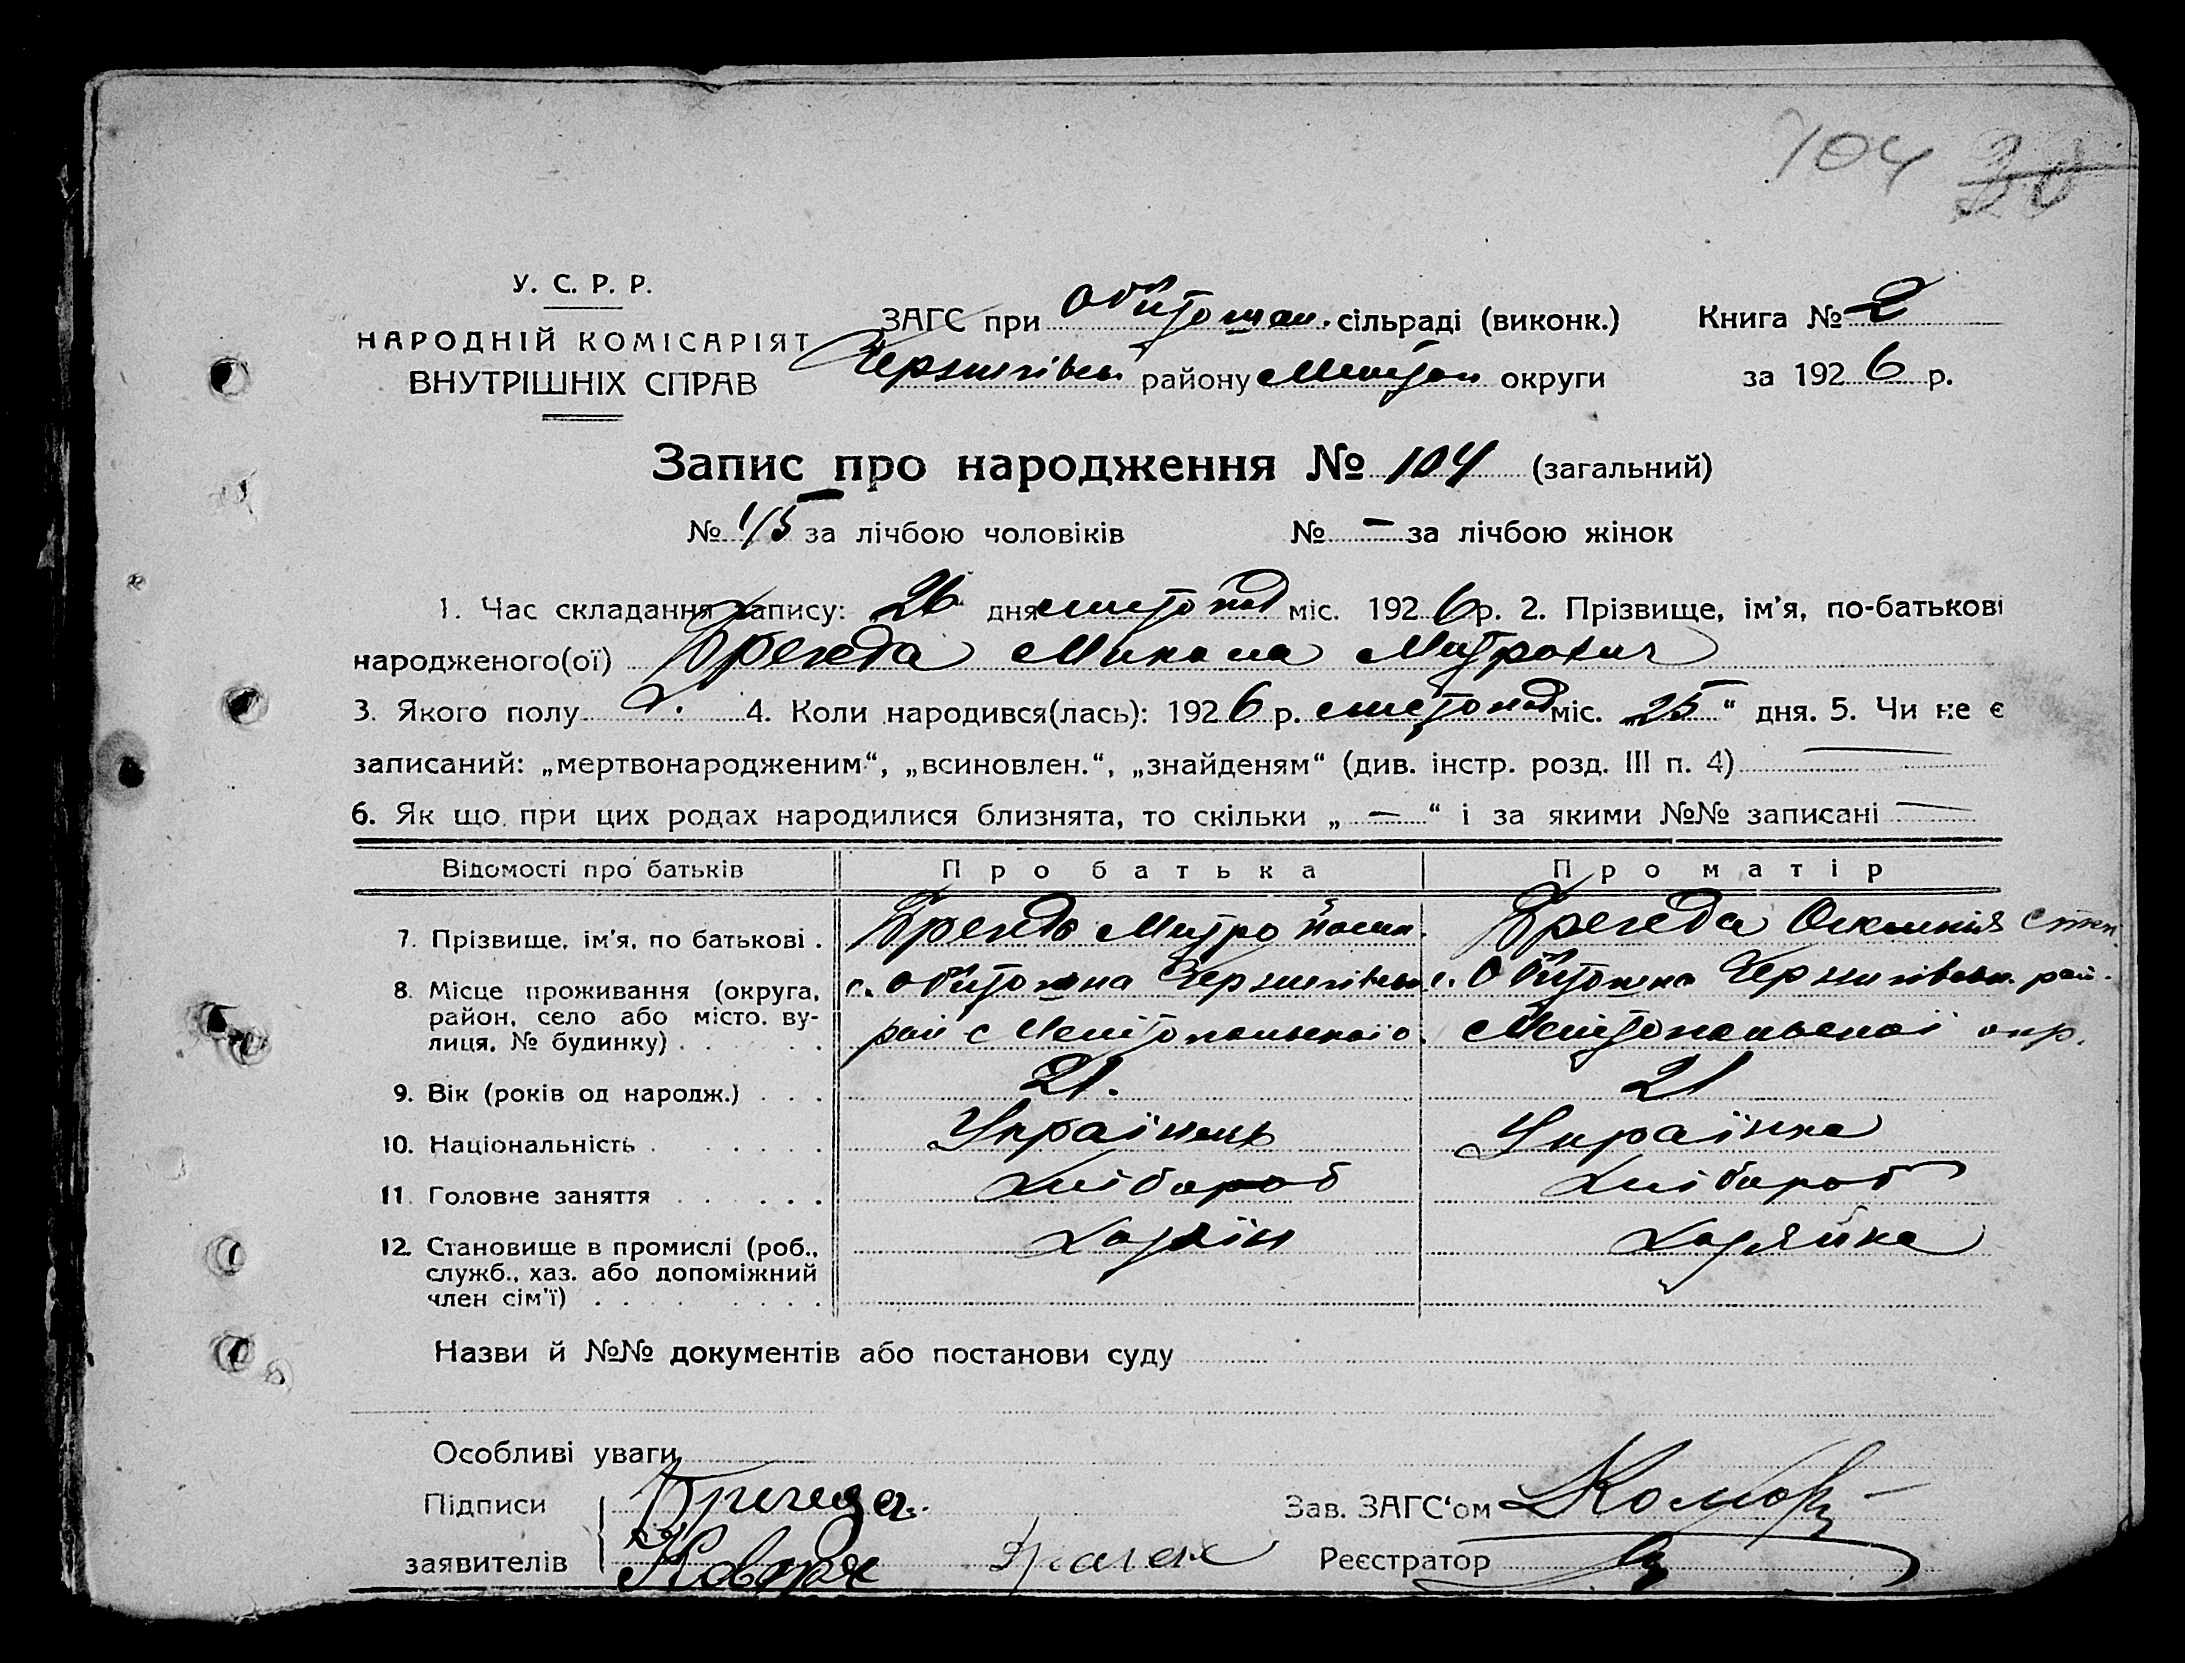 104 30
У. С. Р. Р.
НАРОДНІЙ КОМІСАРІЯТ
ВНУТРІШНІХ СПРАВ
ЗАГС при Обіточан. сільраді (виконк.) Книга № 2
Чернигівськ району Меліт округи за 1926 р.
Запис про народження № 104 (загальний)
№ 45 за лічбою чоловіків № — за лічбою жінок
1. Час складання запису: 26 дня листопад міс. 1926 р. 2. Прізвище, ім'я, по-батькові
народженого(ої) Дрегеда Микола Митрович
3. Якого полу ч. 4. Коли народився(лась): 1926 р. листопад міс. „25“ дня. 5. Чи не є
записаний: „мертвонародженим“, „всиновлен.“, „знайденям“ (див. інстр. розд. III п. 4) —
6. Як що при цих родах народилися близнята, то скільки „—“ і за якими №№ записані —
Відомості про батьків Про батька Про матір
7. Прізвище, ім'я, по батькові . Митро Дрегеда
8. Місце проживання (округа, район, село або місто, вулиця, № будинку) с. Обіточна Чернигівськ с. Обіточна Чернигівськ. рай.
рай Мелітопольської о. Мелітопольської окр.
9. Вік (років од народж.) . . . 21. 21
10. Національність . Українець Українка
11. Головне заняття Хлібороб Хлібороб
12. Становище в промислі (роб., служб., хаз. або допоміжний член сім'ї) Хазяїн Хазяйка
Назви й №№ документів або постанови суду
Особливі уваги
Підписи Зав. ЗАГС'ом
заявителів Реєстратор